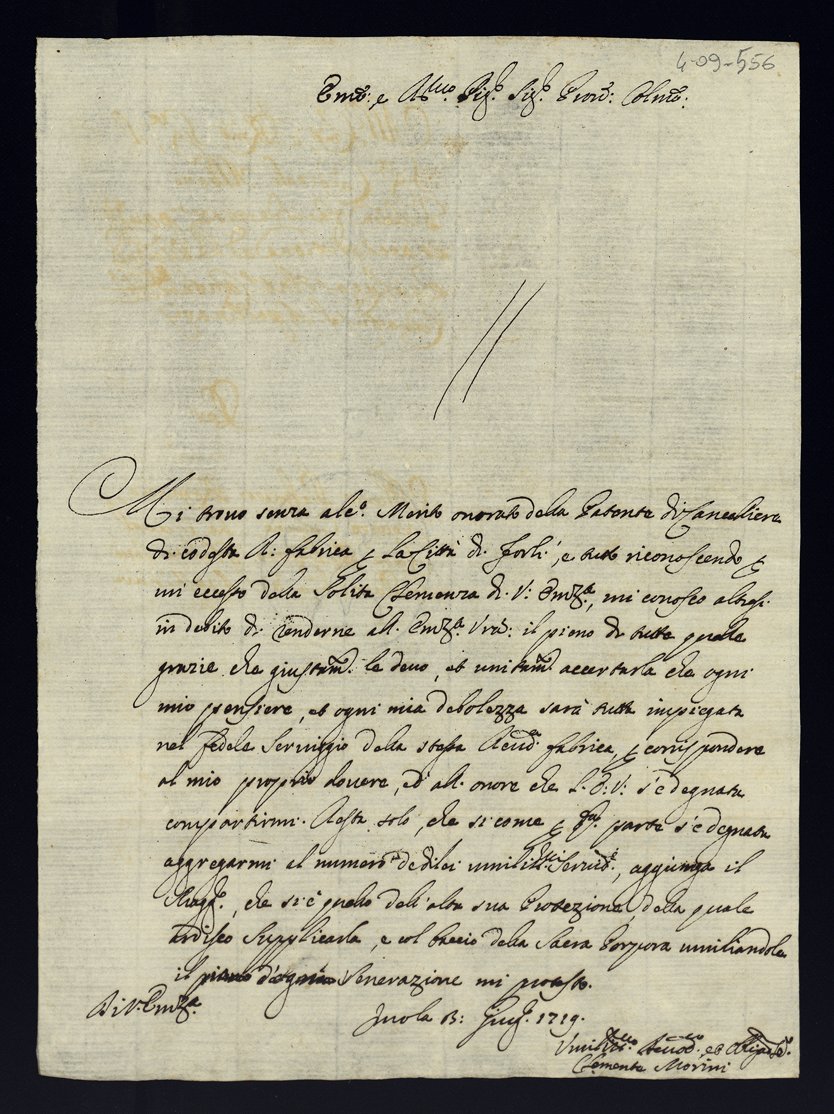 4-09-556
Emo: e Rmo. Sigr. Sigr. Pron: Colmo:
Mi trovo senza alco. Merito onorato della Patente di Cancelliere
di codesta R: fabrica p la Città di Forlì, e tutto riconoscendo p
un eccesso della solita Clemenza di V: Emza., mi conosco altresì
in debito di renderne all' Emza. Vra: il pieno di tutte quelle
grazie che giustamte. le devo, et unitamte. accertarla che ogni
mio pensiere, et ogni mia debolezza sarà tutta impiegata
nel fedele Serviggio della stessa Revda. fabrica, p corrispondere
al mio proprio dovere, ed all' onore che l' E: V: s'è degnata
compartirmi. Resta solo, che si come p sua parte s'è degnata
aggregarmi al numero de di lei umilissmi. Servidi., aggiunga il
Magge., che si è quello dell' alta sua Protezione, della quale
ardisco supplicarla, e col baccio della Sacra Porpora umiliandole
il venerazione mi protesto.
Di V. Emza.
Imola 13: Giug. 1719.
Umilissmo. Devmo., et Obligmo. Se.
Clemente Morini